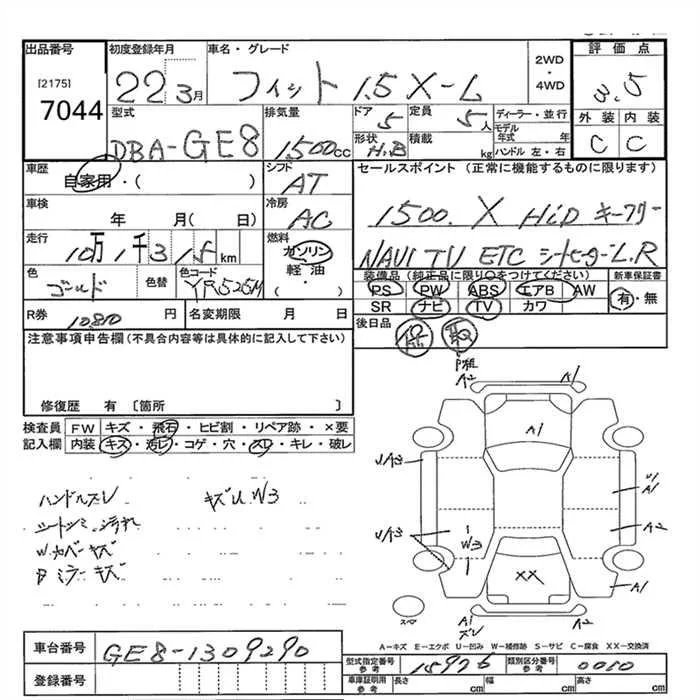 出品番号 初度登録年月 車名・グレード 2WD・4WD 評価点
[2175]
7044
22 3月 フィット 1.5 X-L 3.5
型式 排気量 ドア 定員 ディーラー・並行 外装 内装
DBA-GE8 1500cc 5 5人 モデル年式 年 C C
形状 積載
H.B kg ハンドル 左・右
車歴 シフト セールスポイント (正常に機能するものに限ります)
自家用・( ) AT
車検 冷房 1500. X HiD キーフリー
年 月( 日) AC
走行 燃料 NAVI TV ETC シートヒーター L.R
10万1千3 km ガソリン
軽油・( )
色 色替 色コード 装備品(純正品に限り○をつけてください) 新車保証書
ゴールド YR525M PS PW ABS エアB AW 有・無
SR ナビ TV カワ
R券 10,810 円 名変期限 月 日
後日品 保 取
注意事項申告欄(不具合内容等は具体的に記入して下さい)
修復歴 有 〔箇所 〕
検査員 FW キズ・飛石・ヒビ割・リペア跡・×要
記入欄 内装 キズ・汚レ・コゲ・穴・スレ・キレ・破レ
ハンドルズレ キズU W3
シートシミ.汚れ
W.カバーキズ
ミラーキズ
A2 A1
A1
U/A3 A1
U/A3 W3 A2
XX A1
スペア A1 A2
A-キズ E-エクボ U-凹み W-補修跡 S-サビ C-腐食 XX-交換済
車台番号 GE8-1309290
型式指定番号 参考 15976 類別区分番号 参考 0010
登録番号
車庫証明用 参考 長さ cm 幅 cm 高さ cm